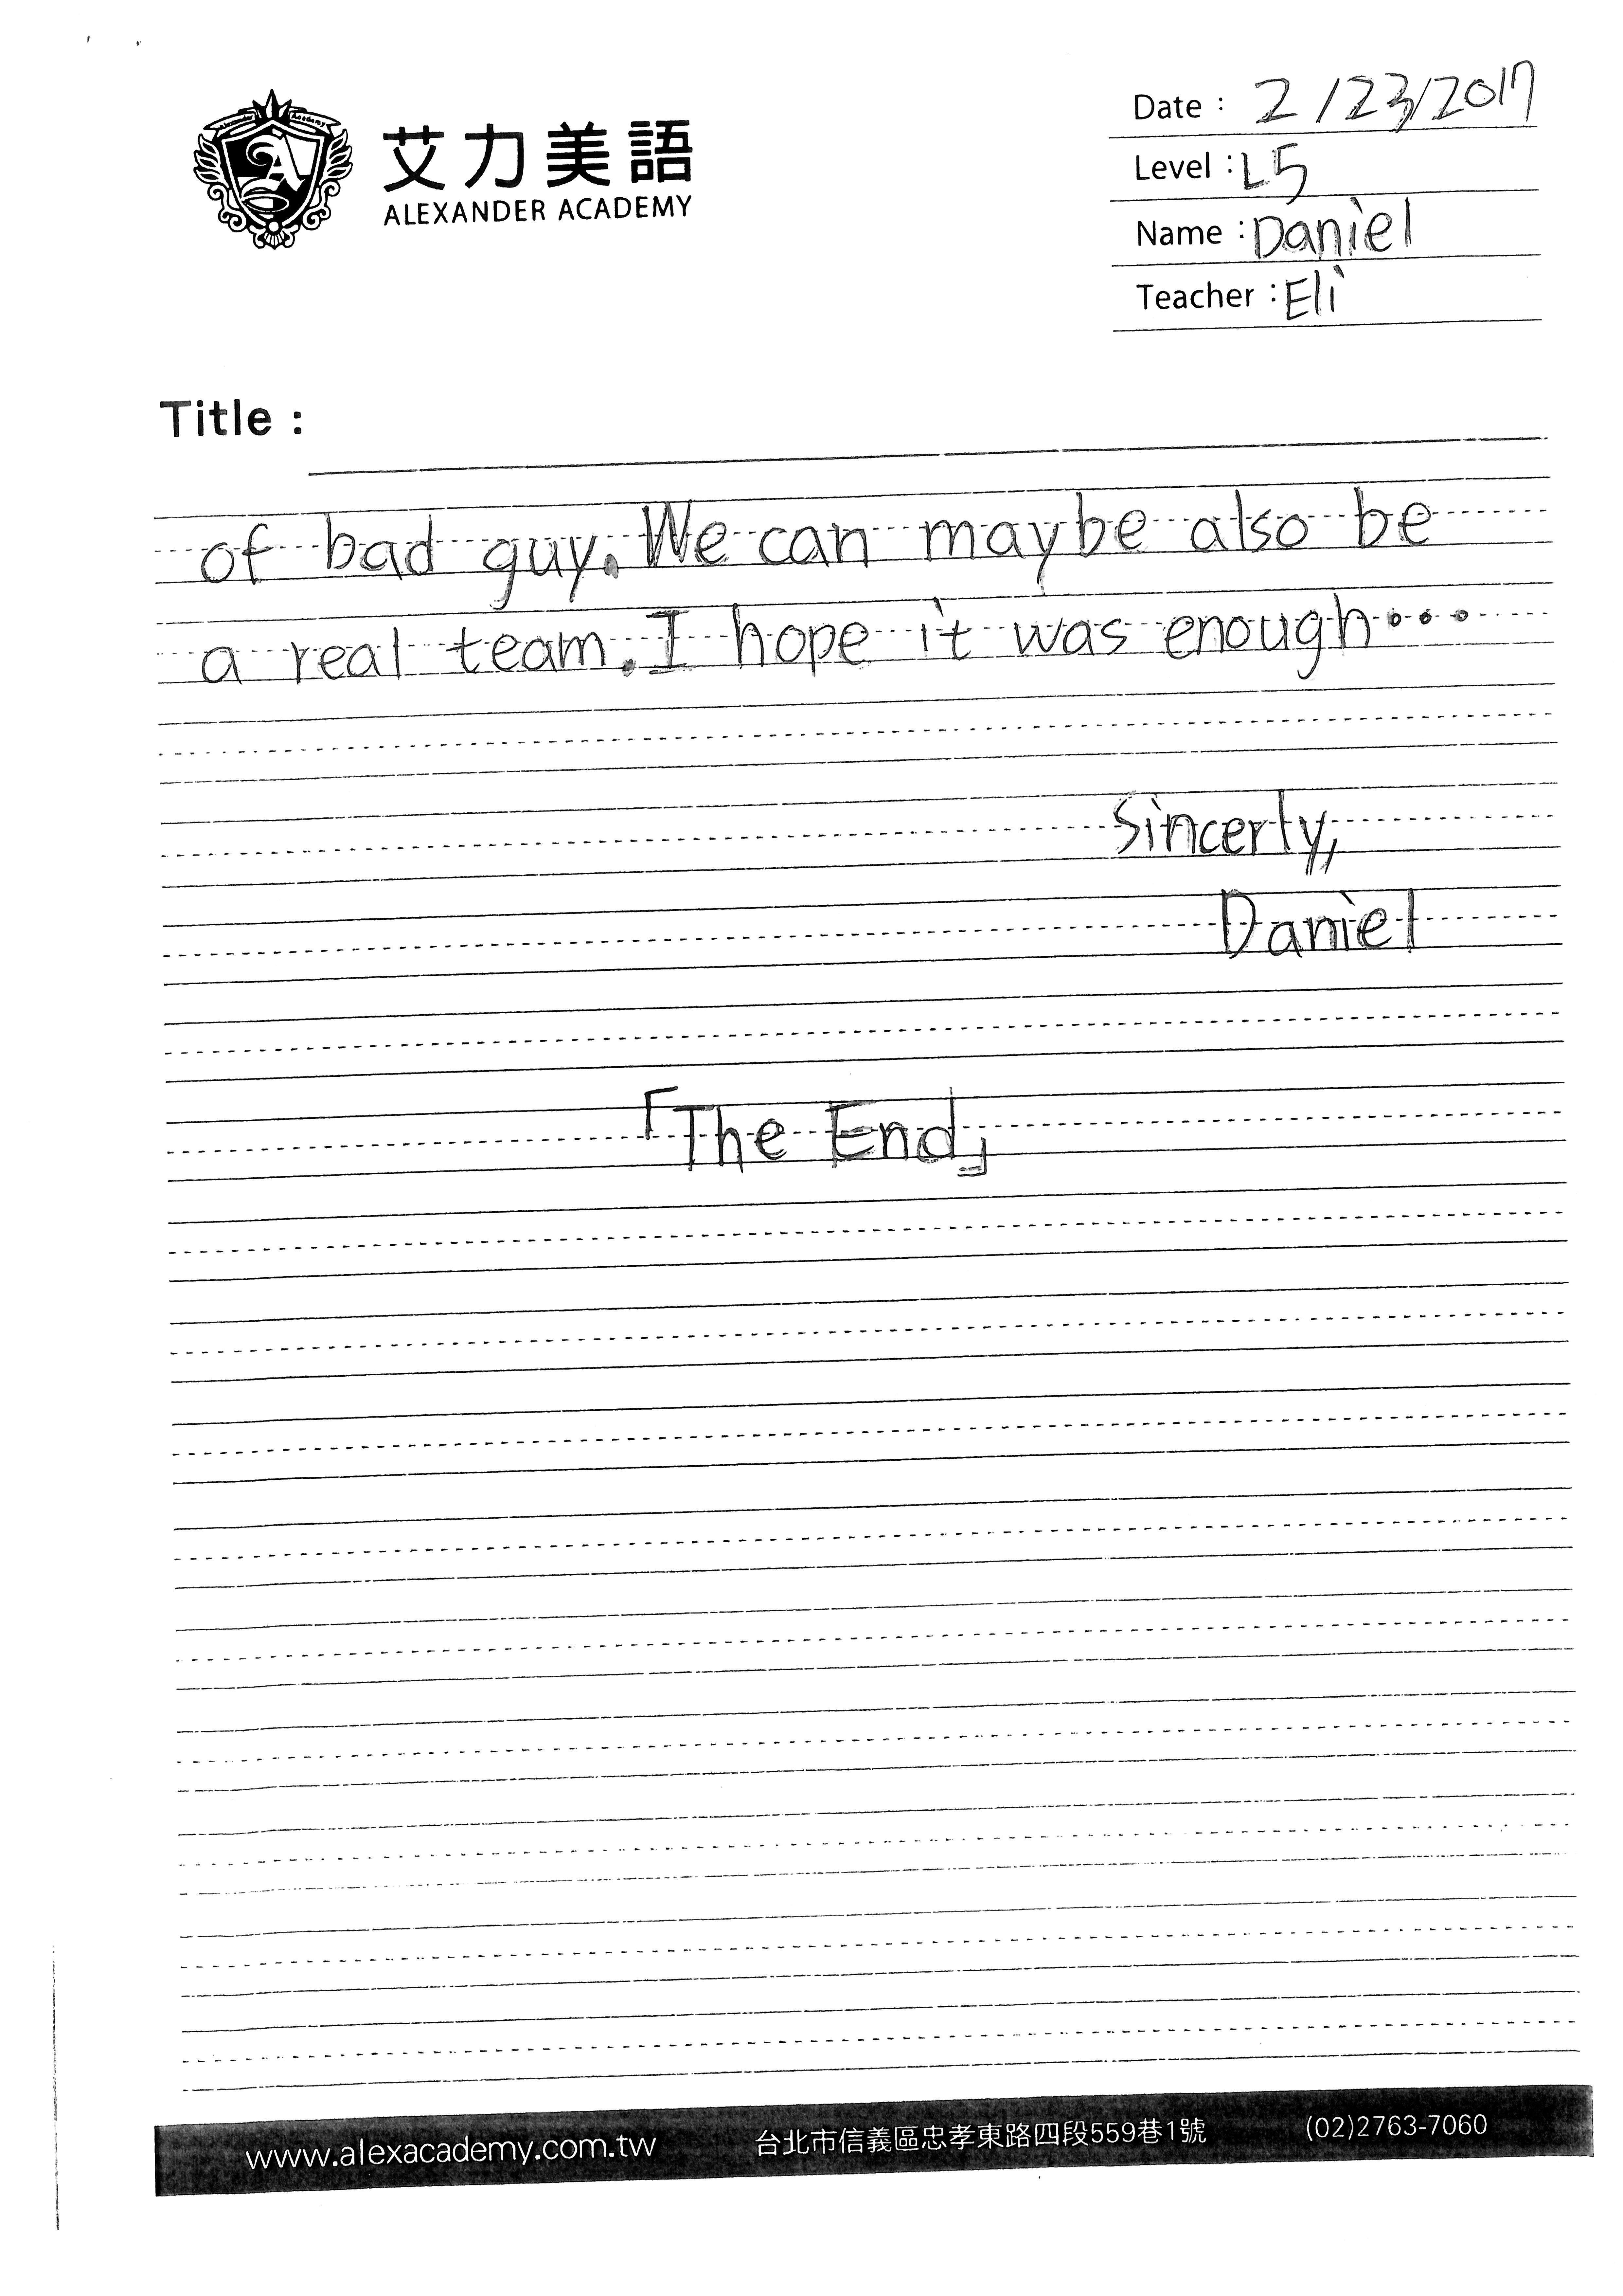 艾力美語
ALEXANDER ACADEMY
Date : 2/23/2017
Level : L5
Name : Daniel
Teacher : Eli
Title :
of bad guy. We can maybe also be
a real team. I hope it was enough...
Sincerly,
Daniel
「The End」
www.alexacademy.com.tw 台北市信義區忠孝東路四段559巷1號 (02)2763-7060